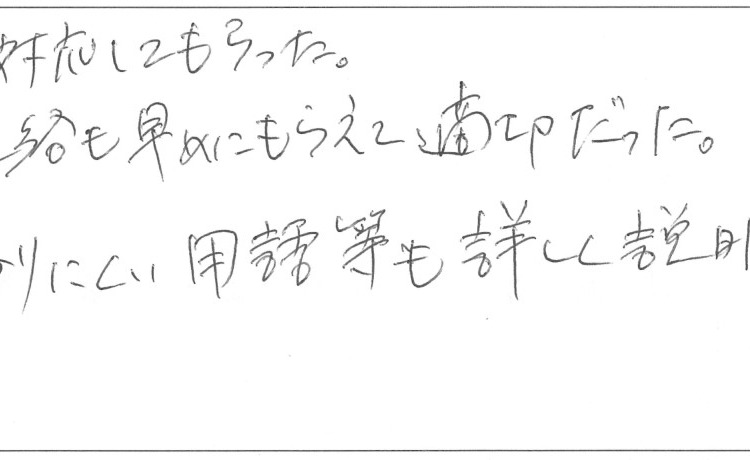 対応してもらった。
絡も早めにもらえて適切だった。
かりにくい用語等も詳しく説明